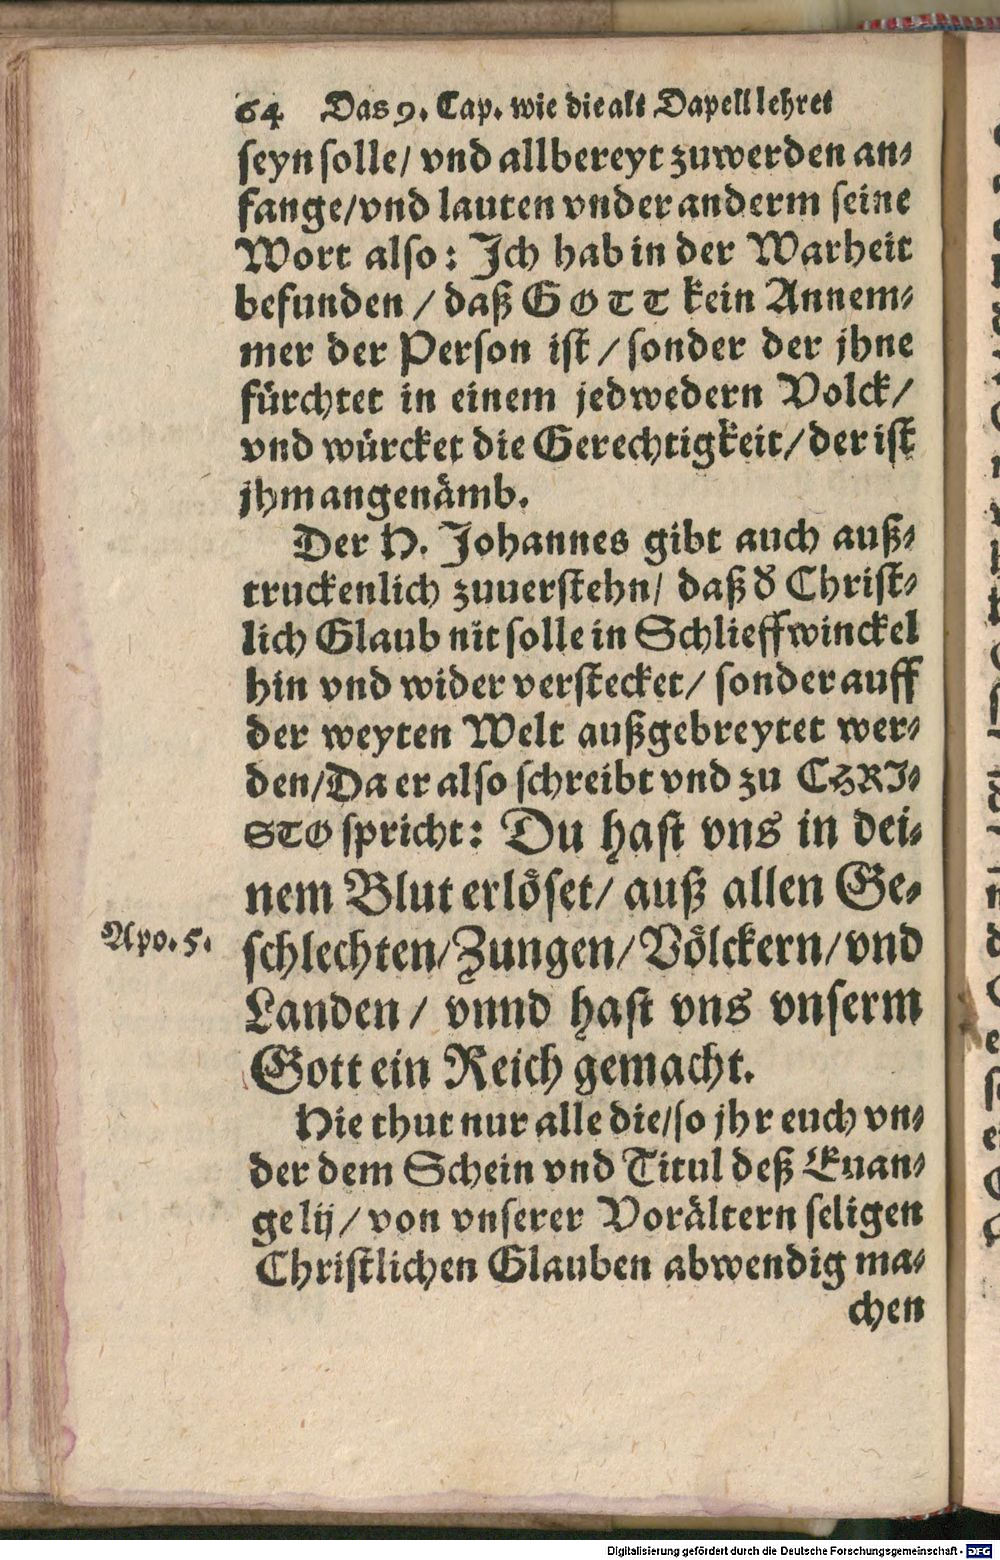 64 Das 9. Cap. wie die alt Dapell lehret
seyn solle/ vnd allbereyt zuwerden an-
fange/vnd lauten vnder anderm seine
Wort also: Ich hab in der Warheit
befunden / daß GOTT kein Annem-
mer der Person ist / sonder der jhne
fürchtet in einem jedwedern Volck/
vnd würcket die Gerechtigkeit/ der ist
jhm angenämb.
Der H. Johannes gibt auch auß-
truckenlich zuuerstehn/ daß d̕ Christ-
lich Glaub nit solle in Schlieffwinckel
hin vnd wider verstecket/ sonder auff
der weyten Welt außgebreytet wer-
den/Da er also schreibt vnd zu CHRI-
STO spricht: Du hast vns in dei-
nem Blut erlöset/ auß allen Ge-
Apo. 5. schlechten/Zungen/Völckern/vnd
Landen/ vnnd hast vns vnserm
Gott ein Reich gemacht.
Hie thut nur alle die/so jhr euch vn-
der dem Schein vnd Titul deß Euan-
gelij/ von vnserer Vorältern seligen
Christlichen Glauben abwendig ma-
chen
Digitalisierung gefördert durch die Deutsche Forschungsgemeinschaft - DFG